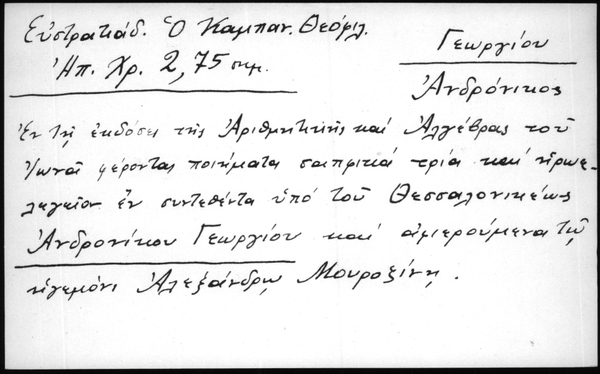 Εὐστρατιάδ. Ὁ Καμπαν. Θεόφιλ.
Ἠπ. Χρ. 2, 75 σημ.
Γεωργίου
Ἀνδρόνικος
Ἐν τῇ ἐκδόσει τῆς Ἀριθμητικῆς καὶ Ἀλγέβρας τοῦ
φέρονται ποιήματα σαπφικά τρία καὶ ἡρωε-
λεγεῖον ἓν συντεθέντα ὑπό τοῦ Θεσσαλονικέως
Ἀνδρονίκου Γεωργίου καὶ ἀφιερούμενα τῷ
ἡγεμόνι Ἀλεξάνδρῳ Μουροζίνῃ.